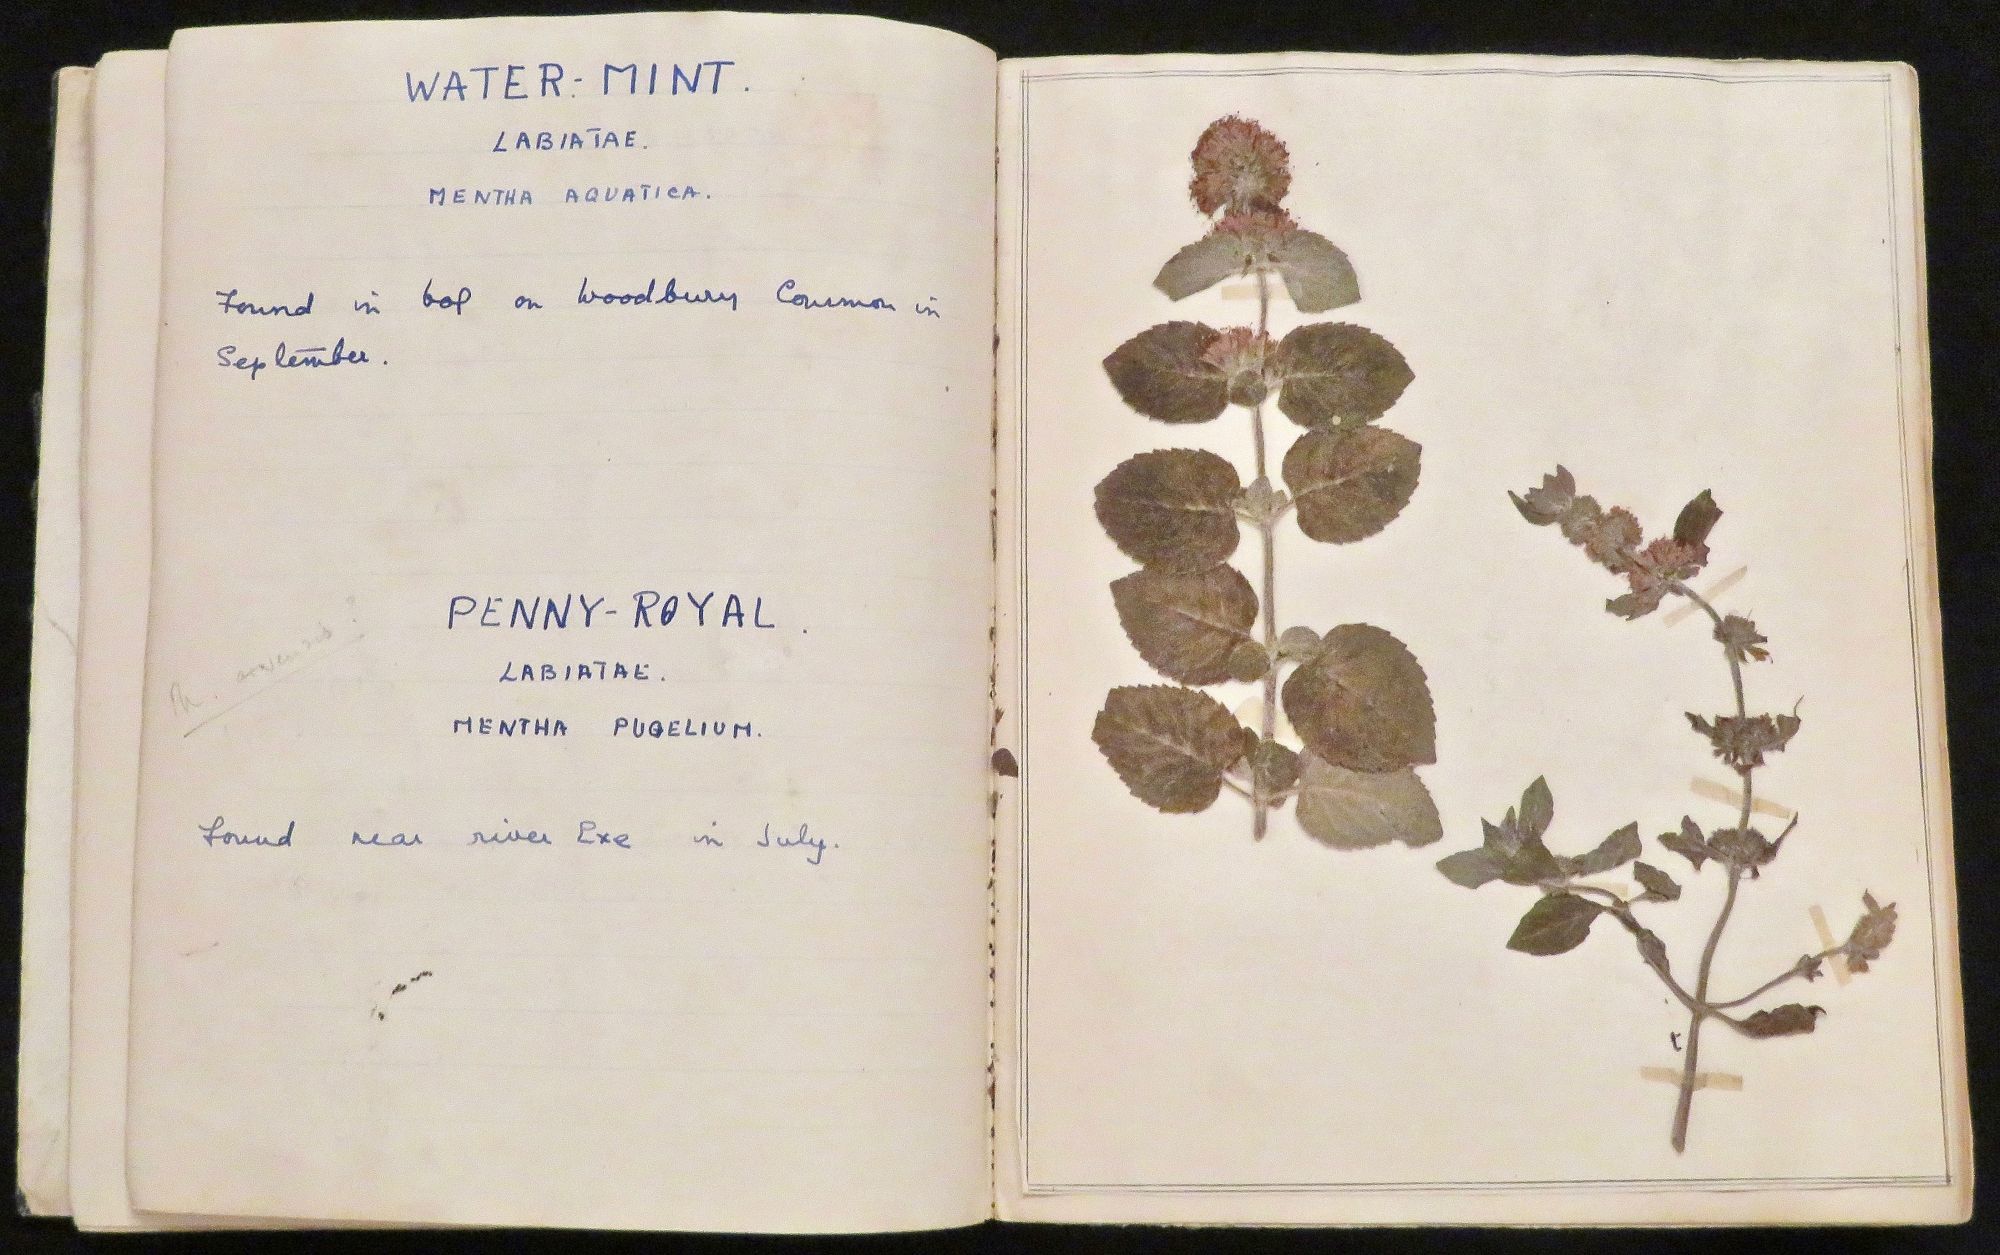 WATER-MINT.
LABIATAE.
MENTHA AQUATICA.
Found in bog on Woodbury Common in
September.
PENNY-ROYAL.
M. arvensis?
LABIATAE.
MENTHA PUGELIUM.
Found near river Exe in July.